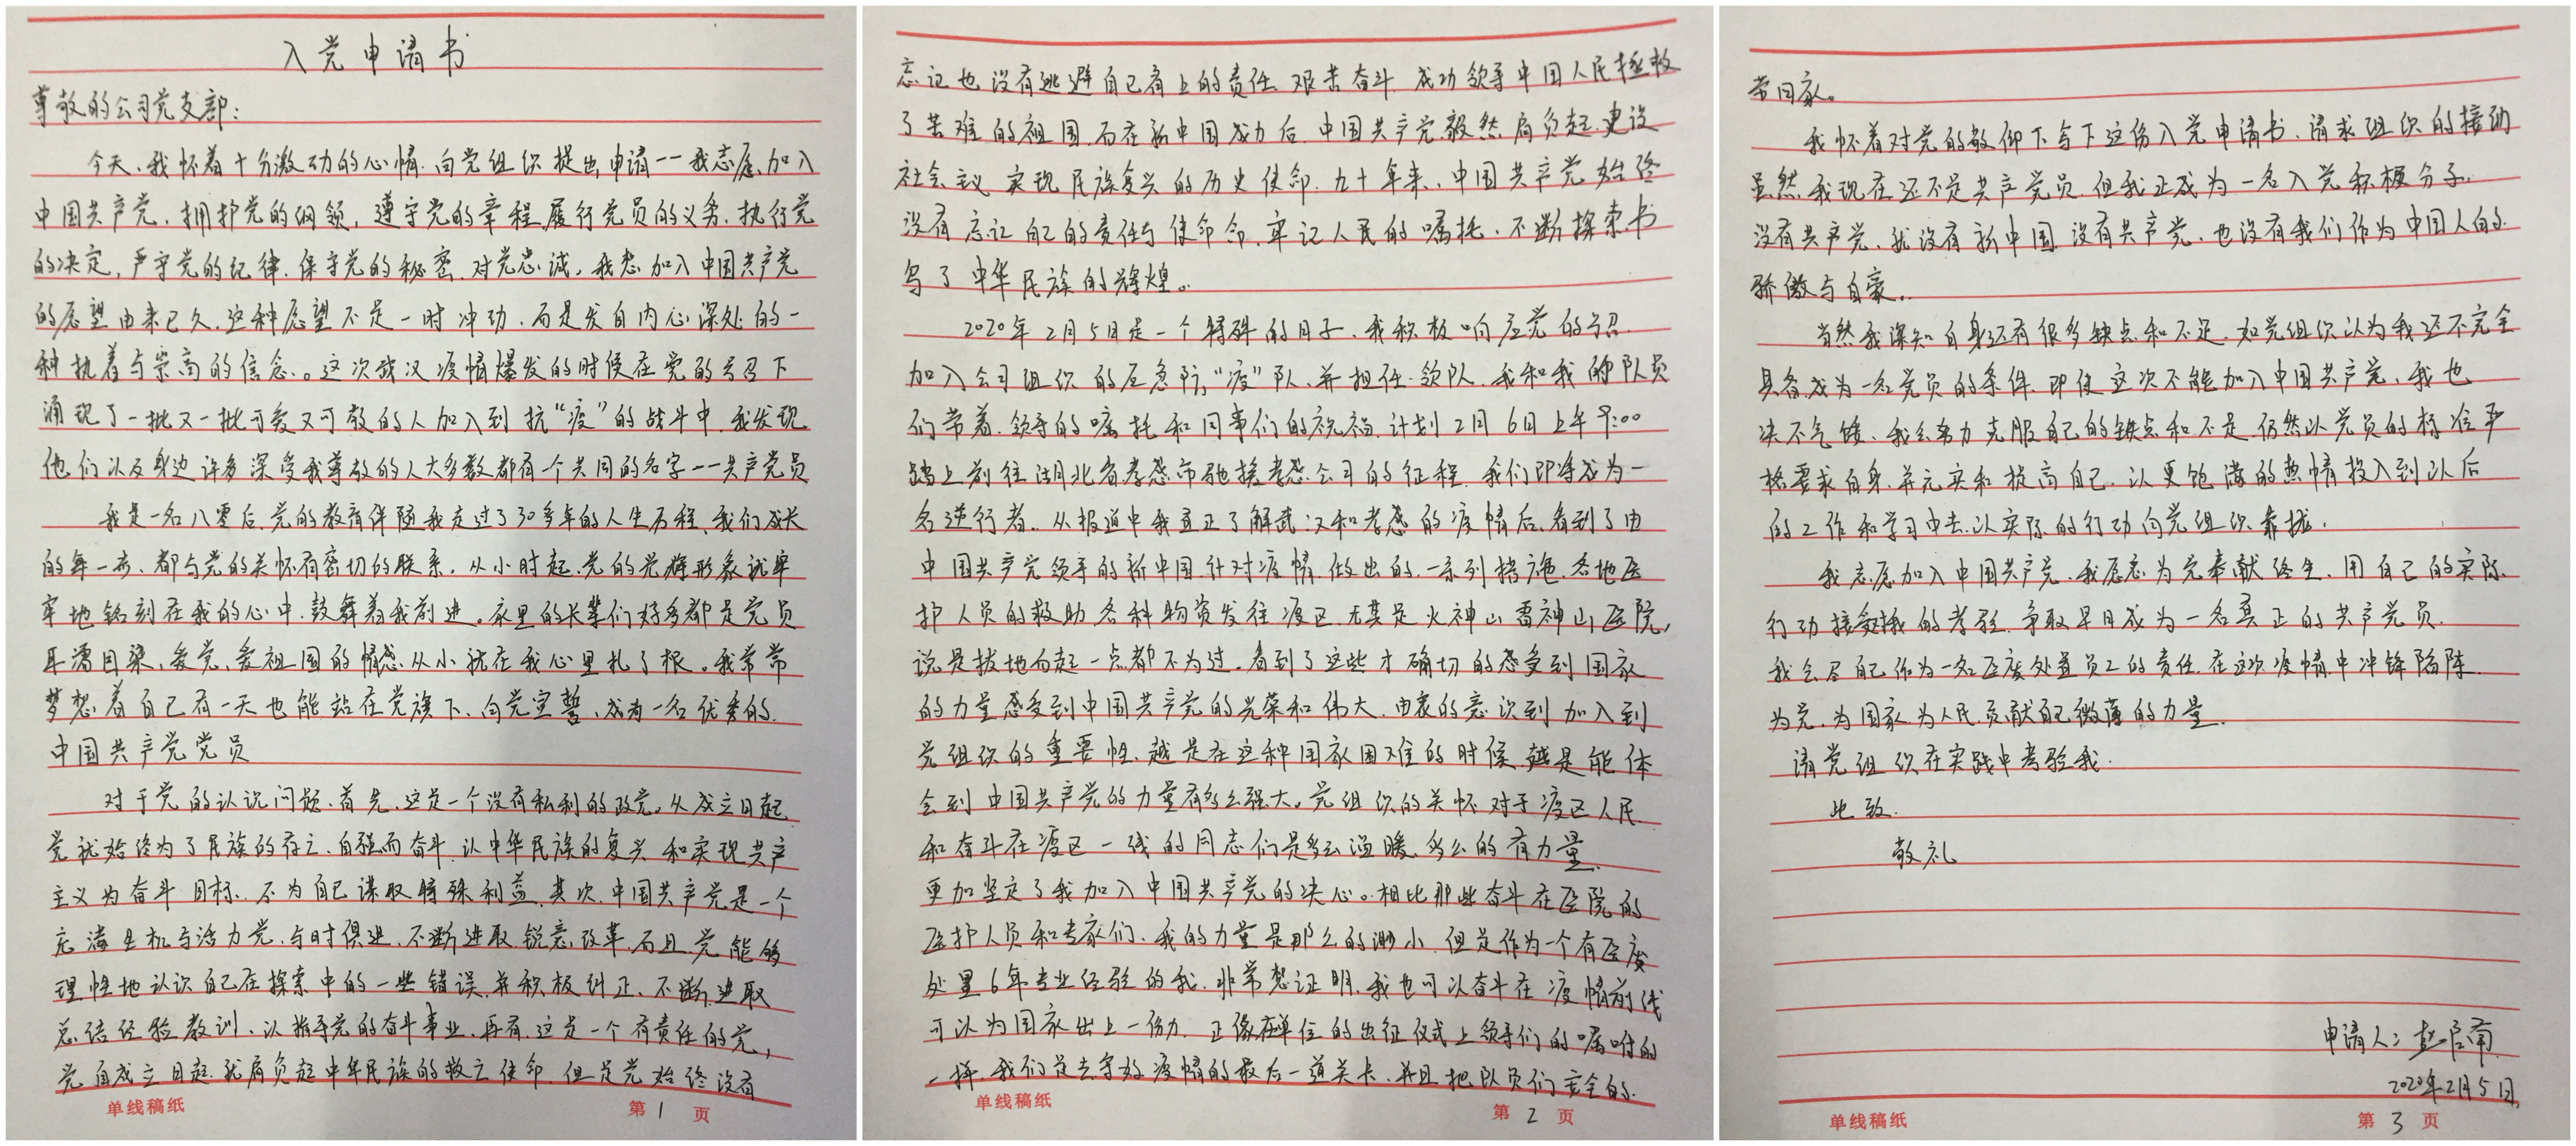 入党申请书
尊敬的公司党支部：
今天、我怀着十分激动的心情、向党组织提出申请一一我志愿加入
中国共产党，拥护党的纲领，遵守党的章程、履行党员的义务、执行党
的决定，严守党的纪律、保守党的秘密、对党忠诚。我想加入中国共产党
的愿望由来已久、这种愿望不是一时冲动、而是发自内心深处的一
种执着与崇高的信念。这次武汉疫情爆发的时候在党的号召下
涌现了一批又一批可爱又可敬的人加入到抗“疫”的战斗中、我发现
他们以及身边许多深受我尊敬的人大多数都有一个共同的名字一一共产党员
我是一名八零后、党的教育伴随我走过了30多年的人生历程、我们成长
的每一步、都与党的关怀有密切的联系。从小时起、党的光辉形象就牢
牢地铭刻在我的心中、鼓舞着我前进。家里的长辈们好多都是党员
耳濡目染、爱党、爱祖国的情感从小就在我心里扎了根。我常常
梦想着自己有一天也能站在党旗下、向党宣誓、成为一名优秀的
中国共产党党员
对于党的认识问题、首先、这是一个没有私利的政党。从成立日起
党就始终为了民族的存亡、自强而奋斗、以中华民族的复兴和实现共产
主义为奋斗目标、不为自己谋取特殊利益、其次、中国共产党是一个
充满生机与活力党、与时俱进、不断进取、锐意改革、而且党能够
理性地认识自己在探索中的一些错误、并积极纠正、不断进取
总结经验教训、以指导党的奋斗事业、再有、这是一个有责任的党，
党自成立日起、就肩负起中华民族的救亡使命、但是党始终没有
单线稿纸 第1页
忘记也没有逃避自己肩上的责任、艰苦奋斗、成功领导中国人民拯救
了苦难的祖国、而在新中国成力后、中国共产党毅然肩负起建设
社会主义 实现民族复兴的历史使命、九十年来、中国共产党始终
没有忘记自己的责任与使命命、牢记人民的嘱托、不断探索书
写了中华民族的辉煌。
2020年2月5日是一个特殊的日子、我积极响应党的号召
加入公司组织的应急防“疫”队、并担任领队、我和我的队员
们带着、领导的嘱托和同事们的祝福、计划2月6日上午9:00
踏上前往湖北省孝感市驰援孝感公司的征程、我们即将成为一
名逆行者。从报道中我真正了解武汉和孝感的疫情后、看到了由
中国共产党领导的新中国、针对疫情、做出的一系列措施、各地医
护人员的救助、各种物资发往疫区、尤其是火神山雷神山医院，
说是拔地而起一点都不为过。看到了这些才确切的感受到国家
的力量感受到中国共产党的光荣和伟大、由衷的意识到加入到
党组织的重要性、越是在这种国家困难的时候、越是能体
会到中国共产党的力量有多么强大。党组织的关怀对于疫区人民
和奋斗在疫区一线的同志们是多么温暖、多么的有力量、
更加坚定了我加入中国共产党的决心。相比那些奋斗在医院的
医护人员和专家们、我的力量是那么的渺小、但是作为一个有医废
处置6年专业经验的我、非常想证明、我也可以奋斗在疫情前线
可以为国家出上一份力、正像在单位的出征仪式上领导们的嘱咐的
一样、我们是去守好疫情的最后一道关卡、并且把队员们安全的
单线稿纸 第2页
带回家。
我怀着对党的敬仰下写下这份入党申请书、请求组织的接纳
虽然、我现在还不是共产党员、但我正成为一名入党积极分子。
没有共产党、就没有新中国、没有共产党、也没有我们作为中国人的
骄傲与自豪。
当然我深知自身还有很多缺点和不足、如党组织认为我还不完全
具备成为一名党员的条件、即使这次不能加入中国共产党、我也
决不气馁、我会努力克服自己的缺点和不足、仍然以党员的标准严
格要求自身、并充实和提高自己、以更饱满的热情投入到以后
的工作和学习中去、以实际的行动向党组织靠拢。
我志愿加入中国共产党、我愿意为党奉献终生、用自己的实际
行动接受的考验、争取早日成为一名真正的共产党员。
我会尽自己作为一名医废处置员工的责任、在这次疫情中冲锋陷阵
为党、为国家为人民、贡献自己微薄的力量。
请党组织在实践中考验我.
此致.
敬礼
申请人：赵启南
2020年2月5日
单线稿纸 第3页